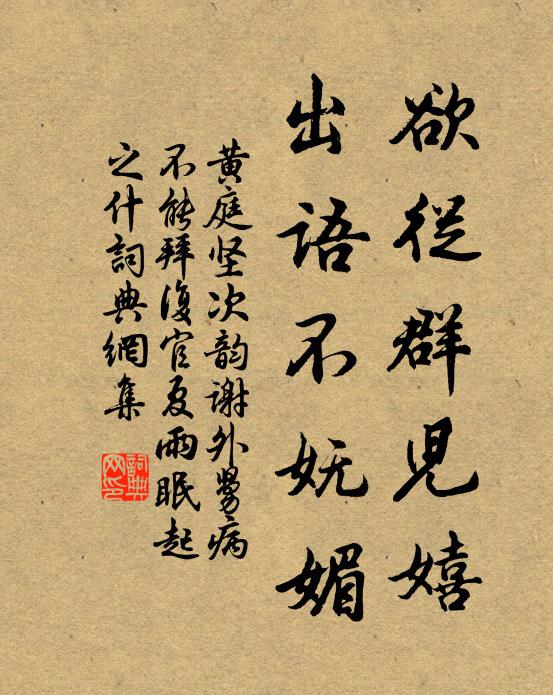 欲從群兒嬉
出語不妩媚
黄庭坚次韵谢外舅病
不能拜復官夏雨眠起
之什詞典網集
詞典网印